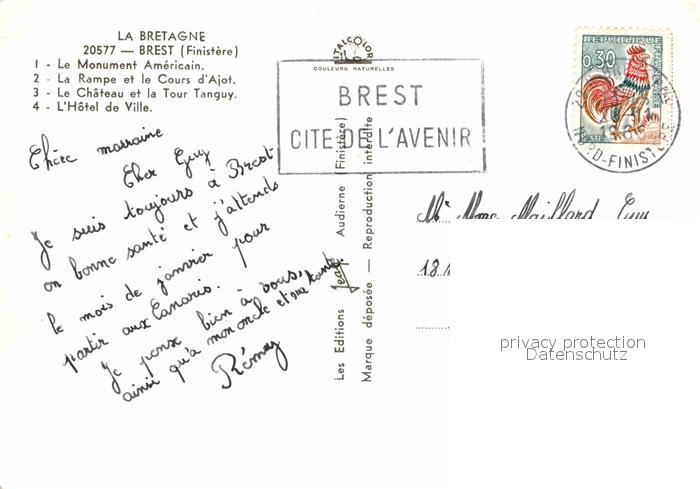 LA BRETAGNE
20577 — BREST (Finistère)
1 - Le Monument Américain.
2 - La Rampe et le Cours d'Ajot.
3 - Le Château et la Tour Tanguy.
4 - L'Hôtel de Ville.
ITALCOLOR
COULEURS NATURELLES
BREST
CITE DE L'AVENIR
0,30
REPUBLIQUE FRANÇAISE
NORD-FINISTERE
Chère marraine
Cher Guy
Je suis toujours à Brest
en bonne santé et j'attends
le mois de janvier pour
partir aux Canaris.
Je pense bien à vous,
ainsi qu'à mon oncle et ma tante.
Rémy
Les Editions Jean Audierne (Finistère)
Marque déposée — Reproduction interdite
Mr Mme Maillard Guy
privacy protection
Datenschutz